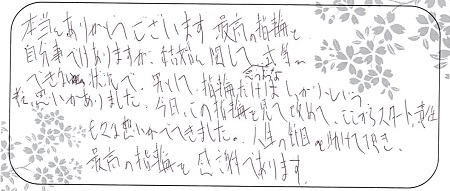 本当にありがとうございます 最高の指輪を
自分事でありますが、結婚に関して 式等が
できない状況で、男として 指輪だけは しっかりという
思いがありました。今日、この指輪を見て改めて、ここからスタート 責任
も 想いがでてきました。人生の節目を助けて頂き、
最高の指輪を 感謝であります。